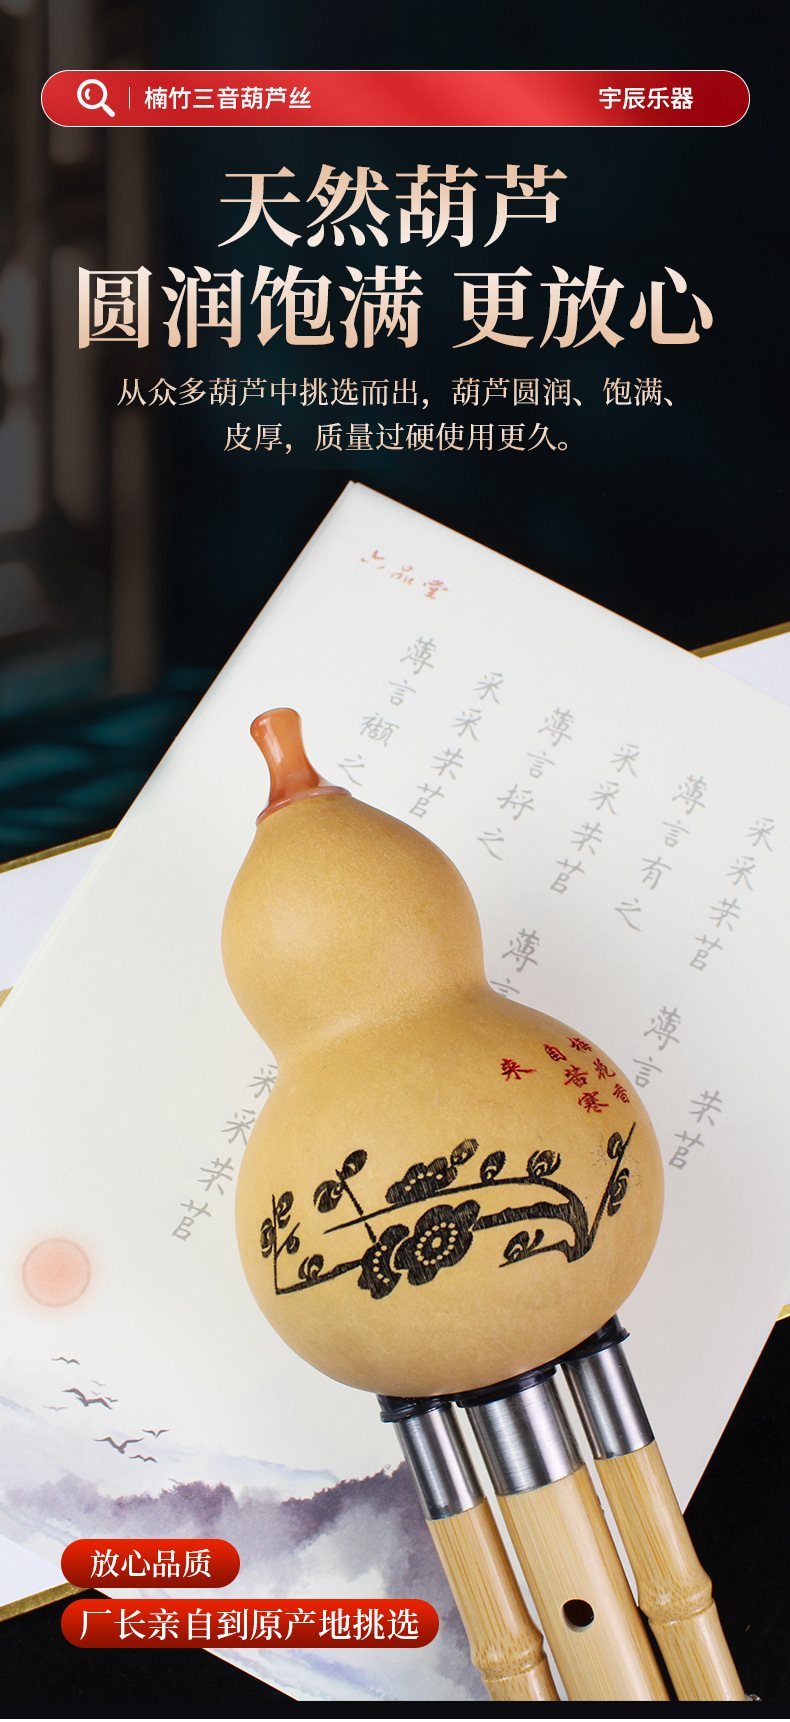 楠竹三音葫芦丝
宇辰乐器
天然葫芦
圆润饱满 更放心
从众多葫芦中挑选而出，葫芦圆润、饱满、
皮厚，质量过硬使用更久。
六品堂
采采芣苢
薄言有之
采采芣苢
薄言捋之
采采芣苢
薄言襭之
芣苢
薄言
薄言
采采芣苢
梅花香
自苦寒
来
放心品质
厂长亲自到原产地挑选